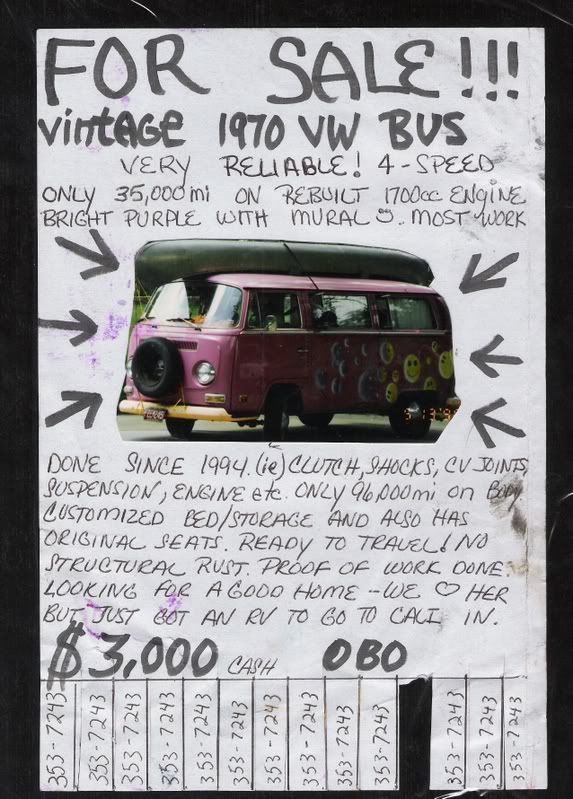 FOR SALE!!!
vintage 1970 VW BUS
VERY RELIABLE! 4-SPEED
ONLY 35,000 mi ON REBUILT 1700cc ENGINE
BRIGHT PURPLE WITH MURAL ☺.. MOST WORK
DONE SINCE 1994. (ie) CLUTCH, SHOCKS, CV JOINTS,
SUSPENSION, ENGINE etc. ONLY 96,000mi on BODY.
CUSTOMIZED BED/STORAGE AND ALSO HAS
ORIGINAL SEATS. READY TO TRAVEL! NO
STRUCTURAL RUST. PROOF OF WORK DONE.
LOOKING FOR A GOOD HOME - WE ♡ HER
BUT JUST GOT AN RV TO GO TO CALI IN.
$3,000 CASH OBO
353-7243
353-7243
353-7243
353-7243
353-7243
353-7243
353-7243
353-7243
353-7243
353-7243
353-7243
353-7243
353-7243